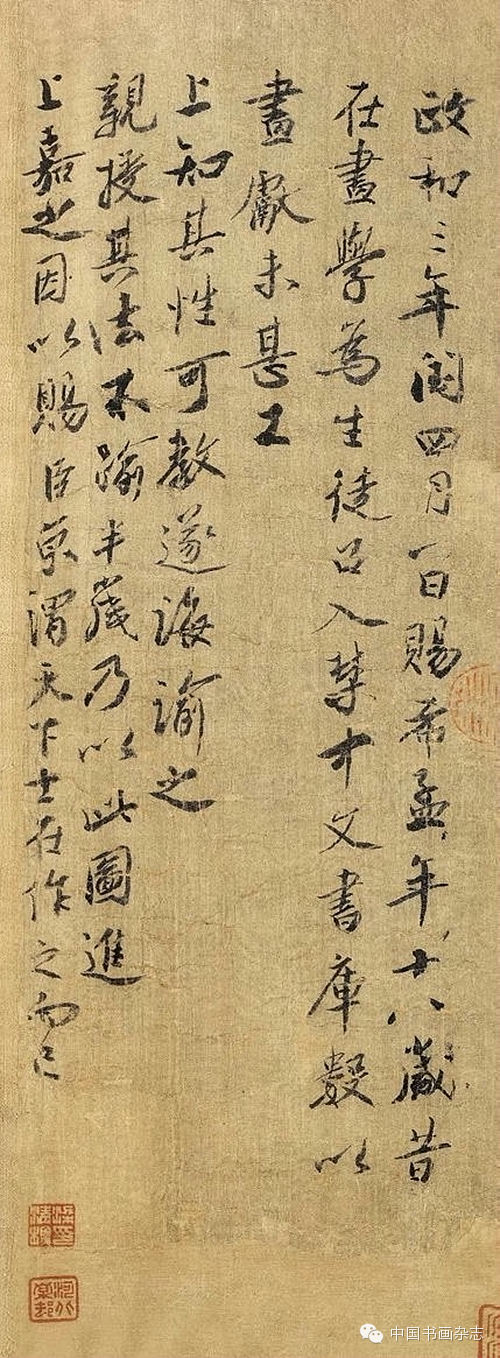 政和三年閏四月一日賜希孟年十八歲昔
在畫學為生徒召入禁中文書庫數以
畫獻未甚工
上知其性可教遂誨諭之
親授其法不踰半歲乃以此圖進
上嘉之因以賜臣京謂天下士在作之而已
中国书画杂志